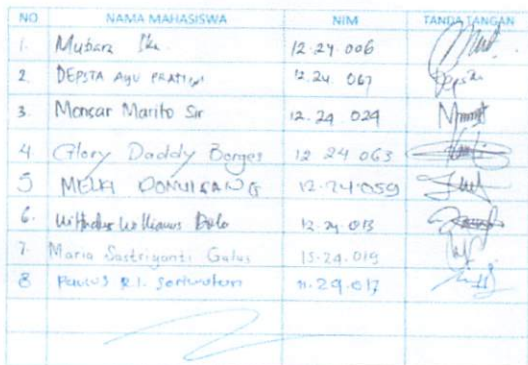 NO NAMA MAHASISWA NIM TANDA TANGAN
1. Mubara 12.24.006
2. DEPSTA AYU PRATIWI 12.24.067 Depsta
3. Moncar Marito Sir 12.24.024
4 Glory Daddy Borges 12 24 063
5 MELKI DONUISANG 12.24.059
6. Willianus Bolo 12.24.013
7. Maria Sastriyanti Galus 15.24.019
8 Paulus R.I. 11.24.017